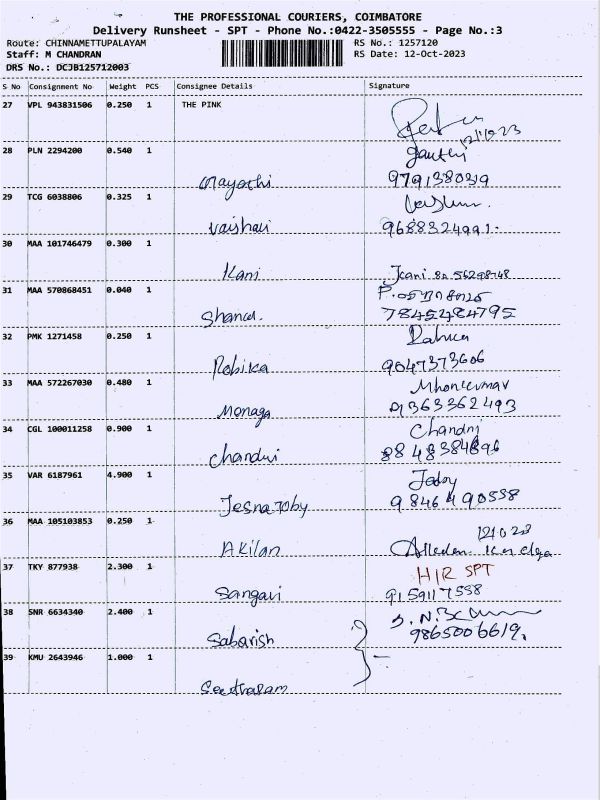 THE PROFESSIONAL COURIERS, COIMBATORE
Delivery Runsheet - SPT - Phone No.:0422-3505555 - Page No.:3
Route: CHINNAMETTUPALAYAM RS No.: 1257120
Staff: M CHANDRAN RS Date: 12-Oct-2023
DRS No.: DCJB125712003
S No Consignment No Weight PCS Consignee Details Signature
27 VPL 943831506 0.250 1 THE PINK
28 PLN 2294200 0.540 1
979138039
29 TCG 6038806 0.325 1
Vaishali 9688324991.
30 MAA 101746479 0.300 1
Kani
31 MAA 570868451 0.040 1
7845484795
32 PMK 1271458 0.250 1
9047373606
33 MAA 572267030 0.480 1
Monaga 9363362493
34 CGL 100011258 0.900 1 Chandni
35 VAR 6187961 4.900 1
Jesna Toby 9846490558
36 MAA 105103853 0.250 1
Akilan
37 TKY 877938 2.300 1 H/R SPT
Sangavi 9159117558
38 SNR 6634340 2.400 1
Sabarish 9865006619.
39 KMU 2643946 1.000 1
Seetharam